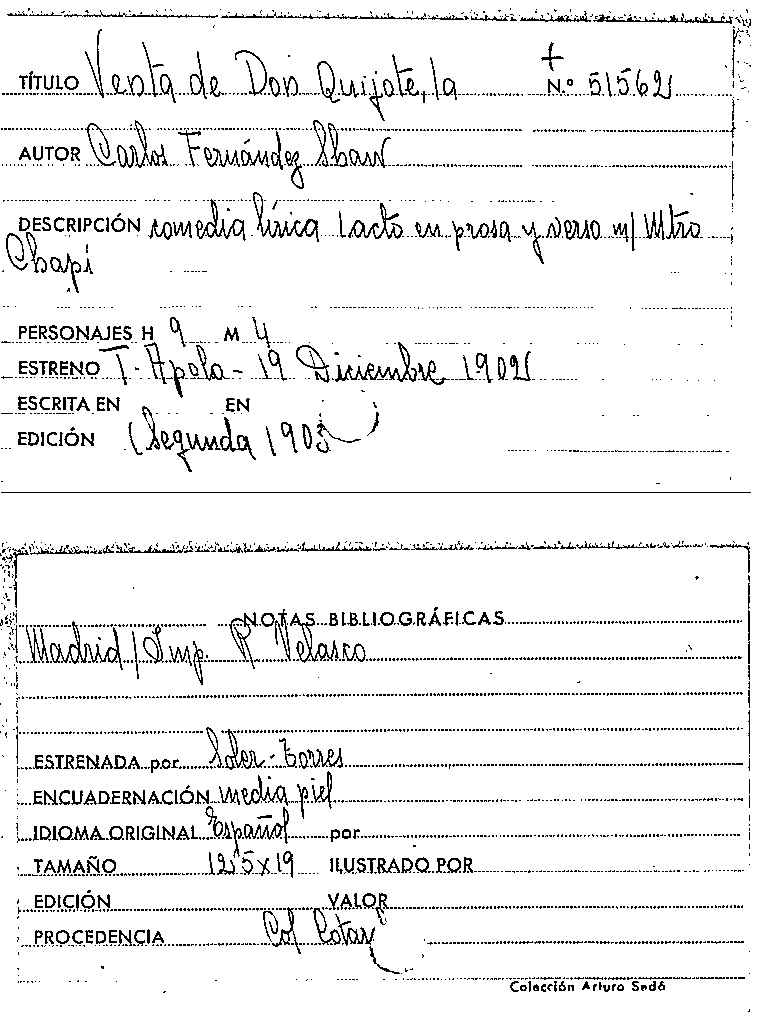 TÍTULO Venta de Don Quijote, la + N.º 51562
AUTOR Carlos Fernández Shaw
DESCRIPCIÓN comedia lírica 1 acto en prosa y verso m/ Mtro
Chapí
PERSONAJES H 9 M 4
ESTRENO T. Apolo - 19 Diciembre 1902
ESCRITA EN EN
EDICIÓN (Segunda 1903
NOTAS BIBLIOGRÁFICAS
Madrid / Imp. R Velasco
ESTRENADA por Soler - Torres
ENCUADERNACIÓN media piel
IDIOMA ORIGINAL Español por
TAMAÑO 12'5 x 19 ILUSTRADO POR
EDICIÓN VALOR
PROCEDENCIA Col
Colección Arturo Sedó